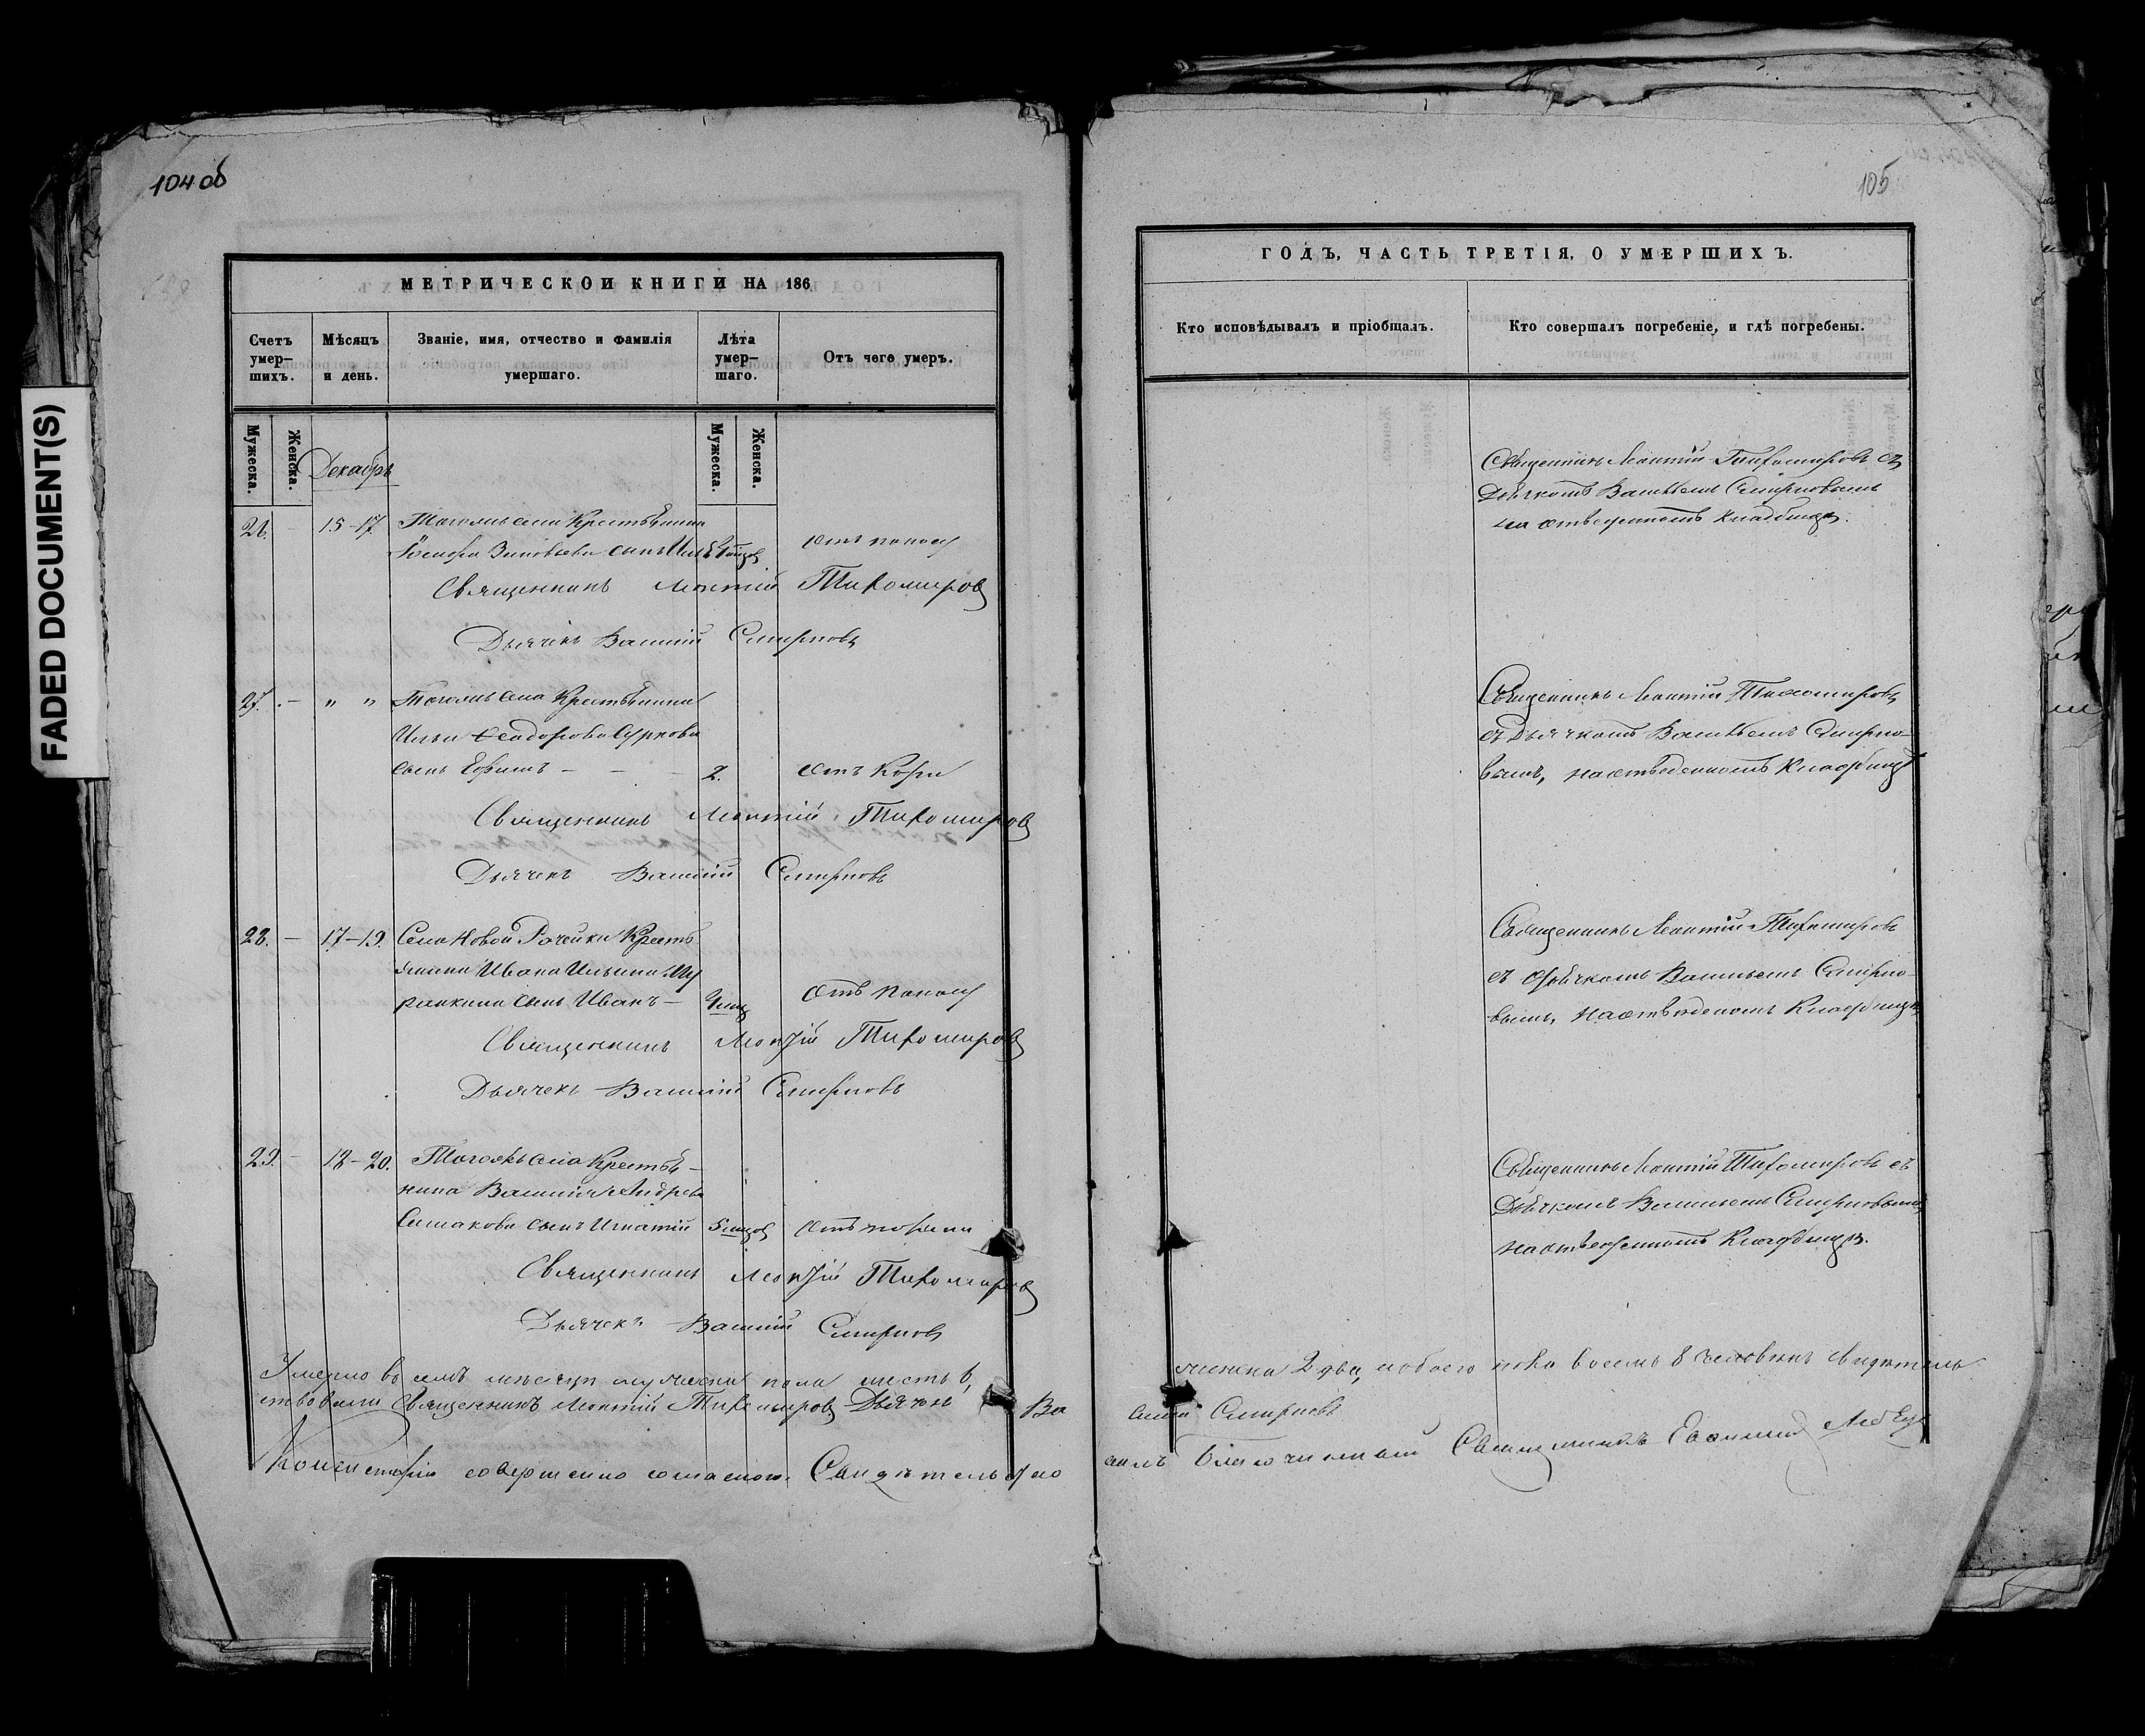 FADED DOCUMENT(S)
104 об
МЕТРИЧЕСКОЙ КНИГИ НА 186
Счетъ умер–шихъ.
Мѣсяцъ и день.
Званіе, имя, отчество и фамилія умершаго.
Лѣта умер–шаго.
Отъ чего умеръ.
Мужеска.
Женска.
Декабрь
Мужеска.
Женска.
26. – 15–17. Тогожъ села Крестьянина
Зиновьева сынъ отъ поносу
Священникъ Леонтій Тихомировъ
Дьячекъ Василій Смирновъ
27. – " " Тогожъ села Крестьянина
Ильи Ѳеодорова Суркова
сынъ Ефимъ – – – 2. отъ Кори
Священникъ Леонтій Тихомировъ
Дьячекъ Василій Смирновъ
28. – 17–19. Села Новой Рачейки Кресть
янина Ивана Ильина
сынъ Иванъ – отъ поносу
Священникъ Леонтій Тихомировъ
Дьячекъ Василій Смирновъ
29. – 18–20. Тогожъ села Крестья–
нина Василія Андрева
сынъ Игнатій
Священникъ Леонтій Тихомировъ
Дьячекъ Василій Смирновъ
Умерло въ семъ мѣсяцѣ мужеска пола шесть 6,
ствовали Священникъ Леонтій Тихомировъ Дьячекъ Ва
совершенно согласно. Свидѣтельство
105
ГОДЪ, ЧАСТЬ ТРЕТІЯ, О УМЕРШИХЪ.
Кто исповѣдывалъ и пріобщалъ.
Кто совершалъ погребеніе, и гдѣ погребены.
Священникъ Леонтій Тихомировъ съ
Дьячкомъ Васильемъ Смирновымъ
на отведенномъ кладбищѣ.
Священникъ Леонтій Тихомировъ
съ Дьячкомъ Васильемъ Смирно–
вымъ, на отведенномъ кладбищѣ
Священникъ Леонтій Тихомировъ
съ дьячкомъ Васильемъ Смирно–
вымъ, на отведеномъ кладбищѣ
Священникъ Леонтій Тихомировъ съ
Дьячкомъ Васильемъ Смирновымъ
на отведенномъ кладбищѣ.
женска 2 два, обоего пола восемь 8 человекъ свидѣтель
силій Смирновъ
Благочинный Священникъ